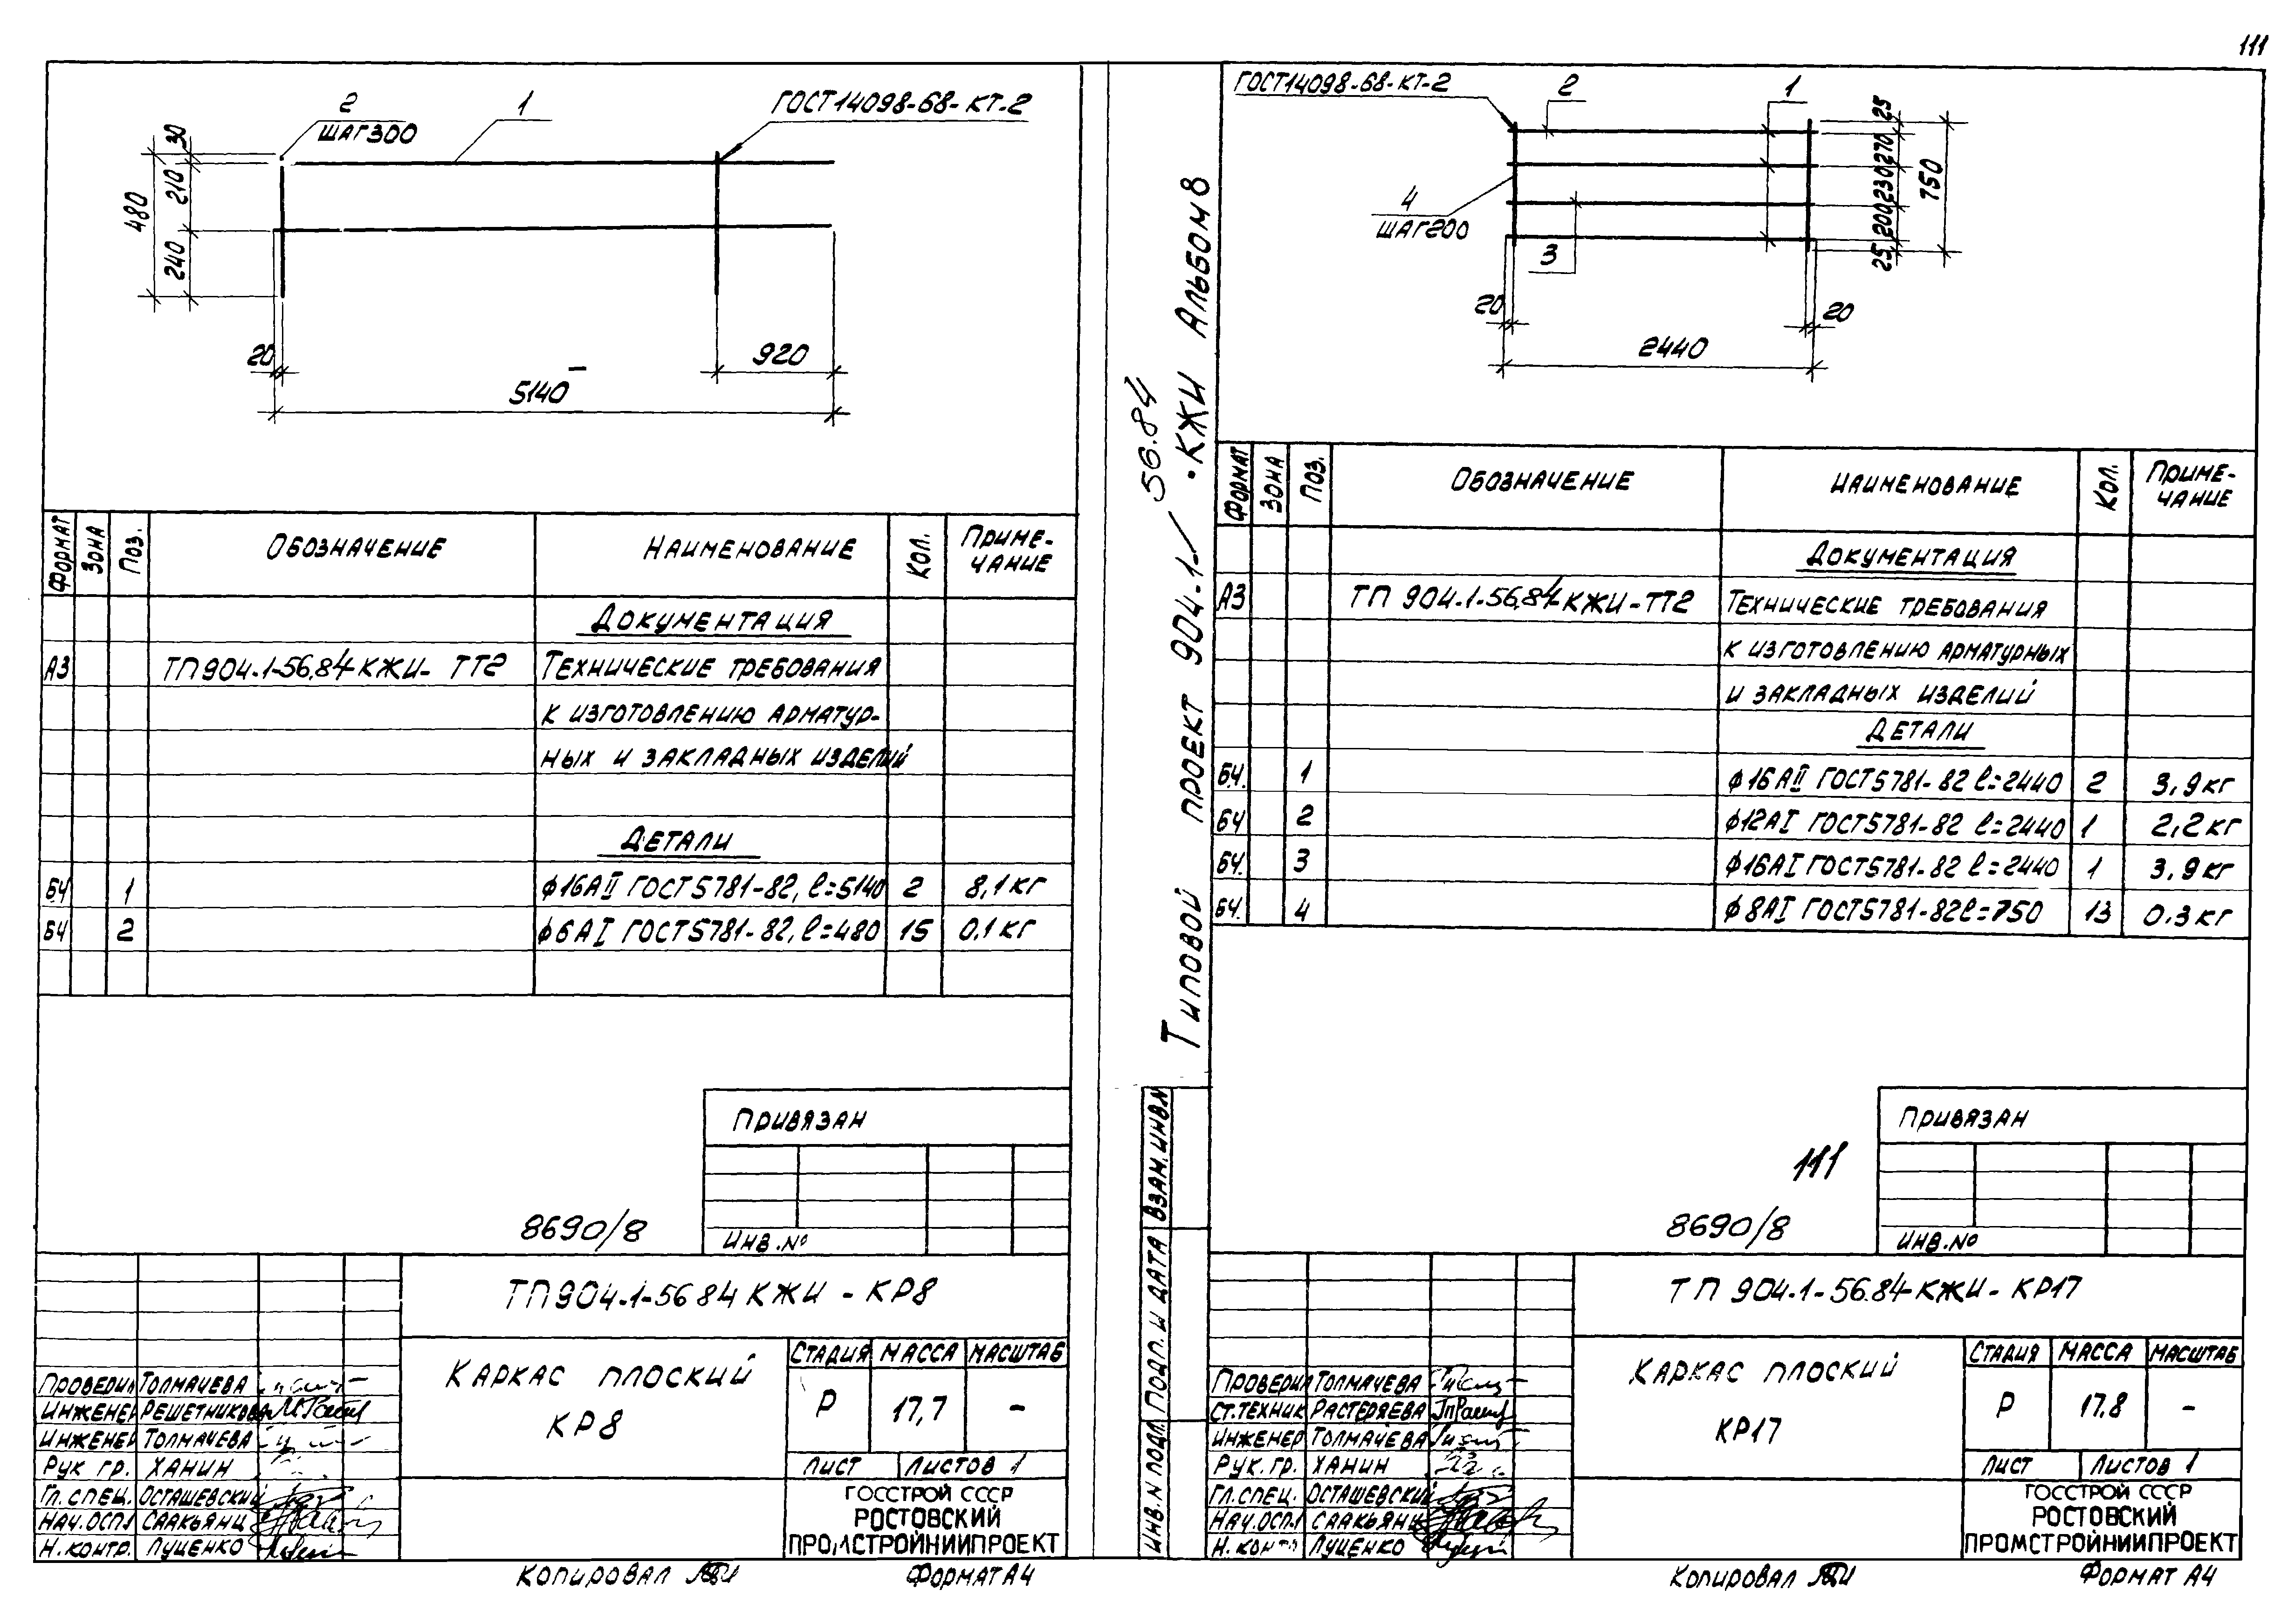 111
2
ШАГ 300
1
ГОСТ14098-68-КТ-2
30
210
240
480
20
920
5140
ФОРМАТ ЗОНА ПОЗ. ОБОЗНАЧЕНИЕ НАИМЕНОВАНИЕ КОЛ. ПРИМЕ-
ЧАНИЕ
ДОКУМЕНТАЦИЯ
А3 ТП904.1-56.84 КЖИ- ТТ2 ТЕХНИЧЕСКИЕ ТРЕБОВАНИЯ
К ИЗГОТОВЛЕНИЮ АРМАТУР-
НЫХ И ЗАКЛАДНЫХ ИЗДЕЛИЙ
ДЕТАЛИ
БЧ 1 ф16АII ГОСТ5781-82, ℓ=5140 2 8,1кг
БЧ 2 ф6АI ГОСТ5781-82, ℓ=480 15 0,1кг
ПРИВЯЗАН
8690/8
ИНВ.№
ТП904.1-56 84 КЖИ - КР8
КАРКАС ПЛОСКИЙ
КР8
СТАДИЯ МАССА МАСШТАБ
Р 17,7 –
ЛИСТ ЛИСТОВ 1
ГОССТРОЙ СССР
РОСТОВСКИЙ
ПРОМСТРОЙНИИПРОЕКТ
ПРОВЕРИЛ ТОЛМАЧЕВА
ИНЖЕНЕР РЕШЕТНИКОВА
ИНЖЕНЕР ТОЛМАЧЕВА
РУК ГР. ХАНИН
ГЛ. СПЕЦ. ОСТАШЕВСКИЙ
НАЧ.ОСП1 СААКЬЯНЦ
Н.КОНТР. ЛУЦЕНКО
КОПИРОВАЛ
ФОРМАТ А4
ТИПОВОЙ ПРОЕКТ 904-1-/ 56.84 •КЖИ АЛЬБОМ 8
ВЗАМ.ИНВ.N
ПОДП. И ДАТА
ИНВ.N ПОДЛ.
ГОСТ14098-68-КТ-2
2
1
4
ШАГ200
3
25
270
230
200
25
750
20
20
2440
ФОРМАТ ЗОНА ПОЗ. ОБОЗНАЧЕНИЕ НАИМЕНОВАНИЕ КОЛ. ПРИМЕ-
ЧАНИЕ
ДОКУМЕНТАЦИЯ
А3 ТП 904.1-56.84 КЖИ-ТТ2 ТЕХНИЧЕСКИЕ ТРЕБОВАНИЯ
К ИЗГОТОВЛЕНИЮ АРМАТУРНЫХ
И ЗАКЛАДНЫХ ИЗДЕЛИЙ
ДЕТАЛИ
БЧ. 1 ф16АII ГОСТ5781-82 ℓ=2440 2 3,9кг
БЧ 2 ф12АI ГОСТ5781-82 ℓ=2440 1 2,2кг
БЧ. 3 ф16АI ГОСТ5781-82 ℓ=2440 1 3,9кг
БЧ. 4 ф8АI ГОСТ5781-82 ℓ=750 13 0.3кг
ПРИВЯЗАН
111
8690/8
ИНВ.№
ТП 904.1-56.84-КЖИ- КР17
КАРКАС ПЛОСКИЙ
КР17
СТАДИЯ МАССА МАСШТАБ
Р 17.8 -
ЛИСТ ЛИСТОВ 1
ГОССТРОЙ СССР
РОСТОВСКИЙ
ПРОМСТРОЙНИИПРОЕКТ
ПРОВЕРИЛ ТОЛМАЧЕВА
СТ.ТЕХНИК РАСТЕРЯЕВА
ИНЖЕНЕР ТОЛМАЧЕВА
РУК.ГР. ХАНИН
ГЛ.СПЕЦ. ОСТАШЕВСКИЙ
НАЧ.ОСП1 СААКЬЯНЦ
Н.КОНТР ЛУЦЕНКО
КОПИРОВАЛ
ФОРМАТ А4